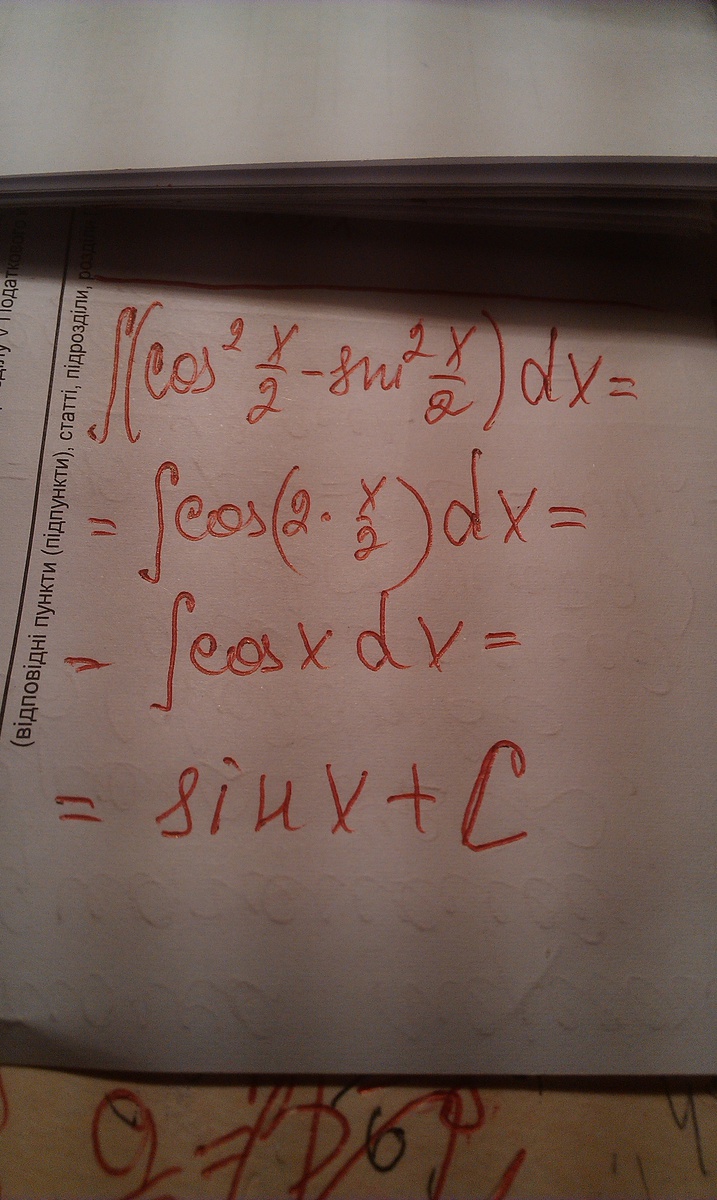 (відповідні пункти (підпункти), статті, підрозділи,
∫(cos² x/2 - sin² x/2) dx =
= ∫cos(2 · x/2) dx =
= ∫cos x dx =
= sin x + C